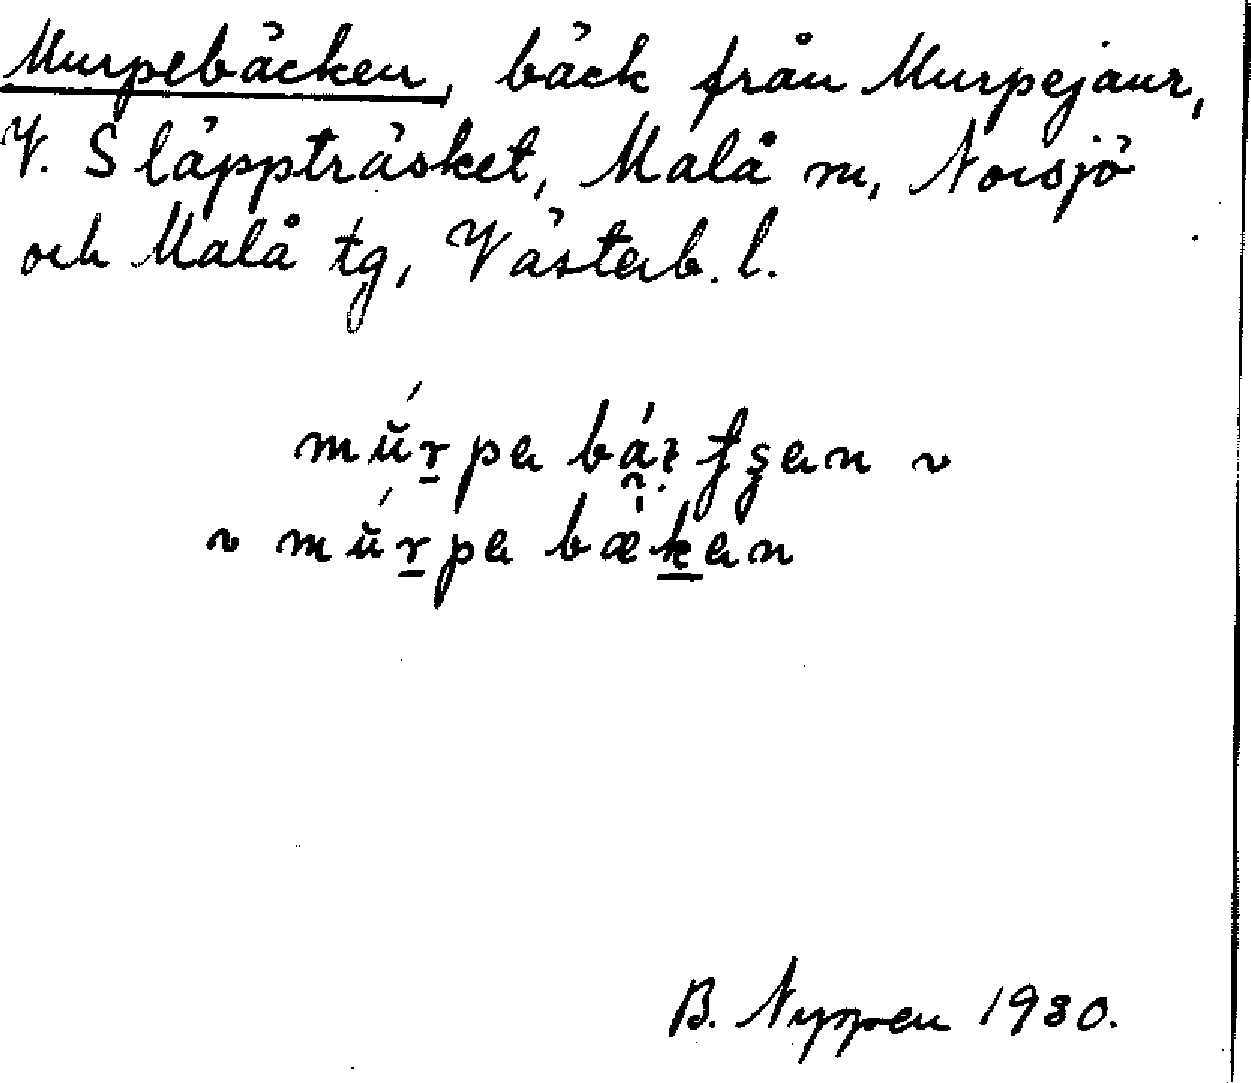 Murpebäcken, bäck från Murpejaur,
V. Släppträsket, Malå m, Norsjö
och Malå tg, Västerb. l.
B. Nyppen 1930.